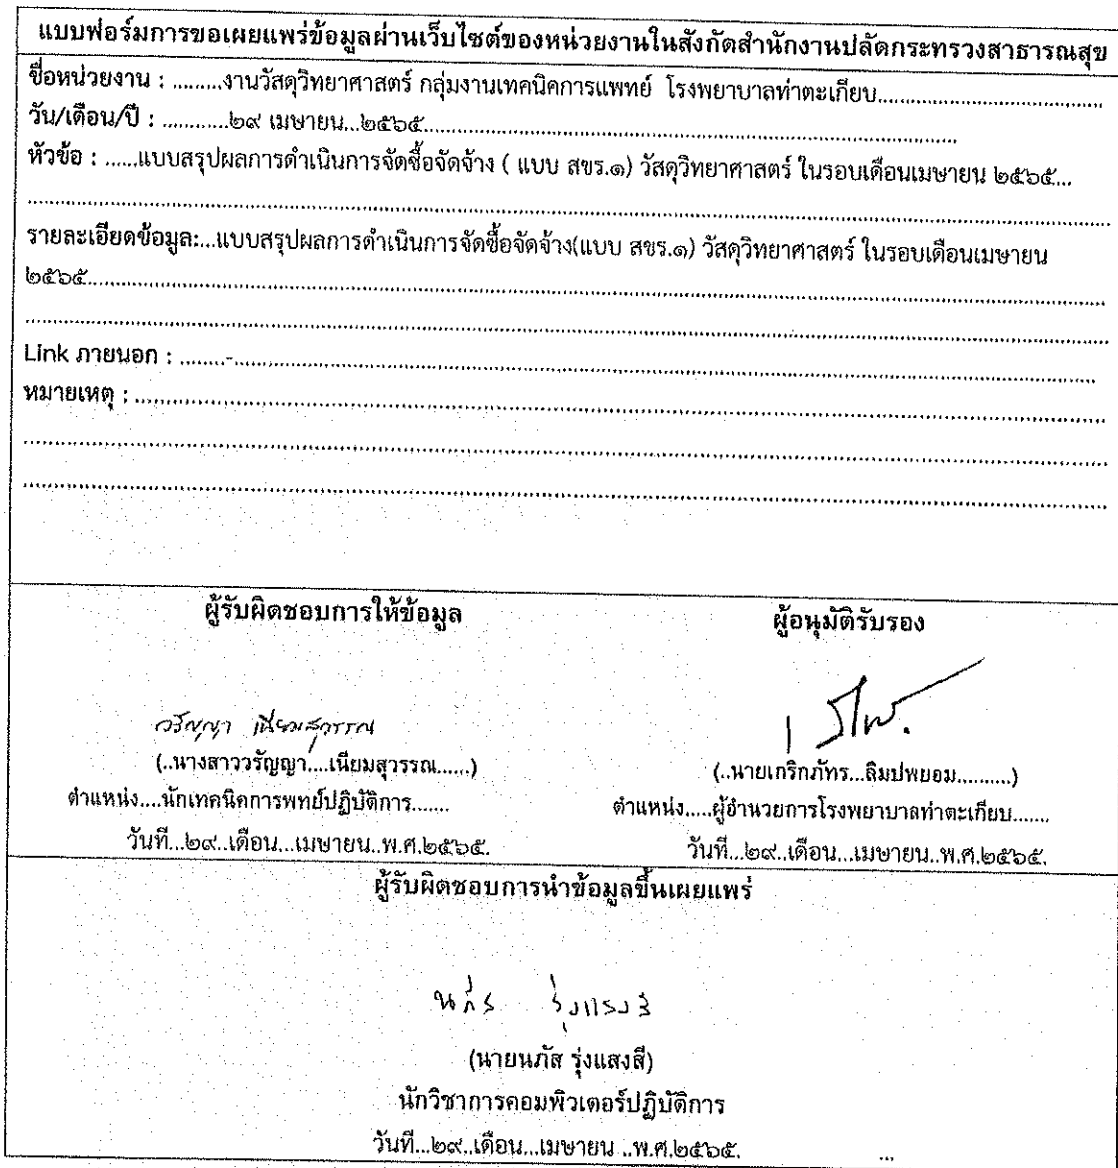 แบบฟอร์มการขอเผยแพร่ข้อมูลผ่านเว็บไซต์ของหน่วยงานในสังกัดสำนักงานปลัดกระทรวงสาธารณสุข
ชื่อหน่วยงาน : .........งานวัสดุวิทยาศาสตร์ กลุ่มงานเทคนิคการแพทย์ โรงพยาบาลท่าตะเกียบ.......................................
วัน/เดือน/ปี : ...........๒๙ เมษายน...๒๕๖๕...............................................
หัวข้อ : ......แบบสรุปผลการดำเนินการจัดซื้อจัดจ้าง ( แบบ สขร.๑) วัสดุวิทยาศาสตร์ ในรอบเดือนเมษายน ๒๕๖๕...
รายละเอียดข้อมูล:...แบบสรุปผลการดำเนินการจัดซื้อจัดจ้าง(แบบ สขร.๑) วัสดุวิทยาศาสตร์ ในรอบเดือนเมษายน
๒๕๖๕...............................................
Link ภายนอก : ........-...............................................
หมายเหตุ : ...............................................
ผู้รับผิดชอบการให้ข้อมูล
ผู้อนุมัติรับรอง
วรัญญา เนียมสุวรรณ
(..นางสาววรัญญา....เนียมสุวรรณ......)
(..นายเกริกภัทร...ลิมปพยอม..........)
ตำแหน่ง....นักเทคนิคการพทย์ปฏิบัติการ.......
ตำแหน่ง.....ผู้อำนวยการโรงพยาบาลท่าตะเกียบ.......
วันที่...๒๙..เดือน...เมษายน..พ.ศ.๒๕๖๕.
วันที่...๒๙..เดือน...เมษายน..พ.ศ.๒๕๖๕.
ผู้รับผิดชอบการนำข้อมูลขึ้นเผยแพร่
นภัส รุ่งแสงสี
(นายนภัส รุ่งแสงสี)
นักวิชาการคอมพิวเตอร์ปฏิบัติการ
วันที่...๒๙..เดือน...เมษายน ..พ.ศ.๒๕๖๕.